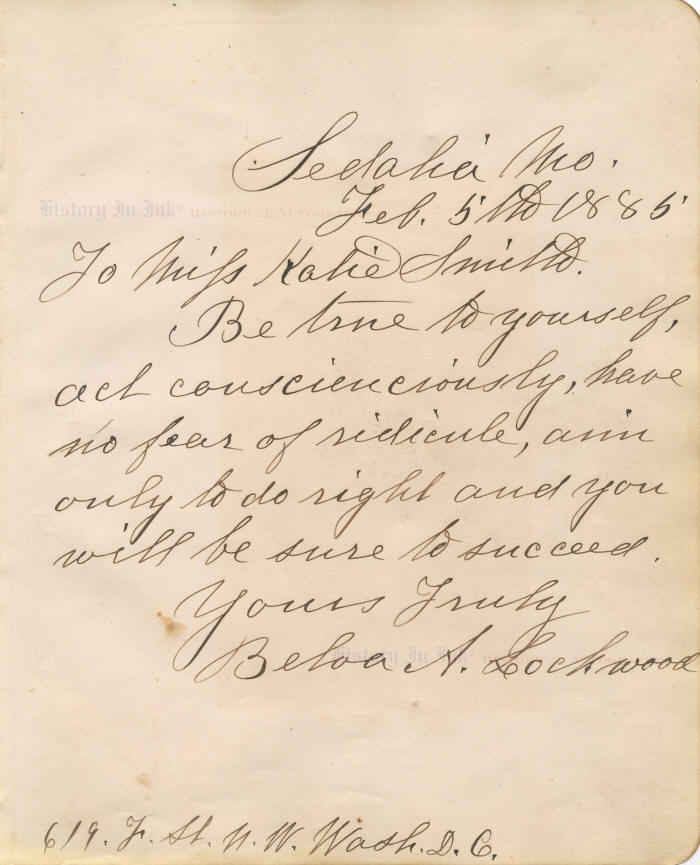 Sedalia Mo.
Feb. 5th 1885
History In Ink® HISTORICAL AUTOGRAPHS
To Miss Katie Smith.
Be true to yourself,
act conscienciously, have
no fear of ridicule, aim
only to do right and you
will be sure to succeed.
Yours Truly
Belva A. Lockwood
History In Ink®
619. F. St. N. W. Wash. D. C.